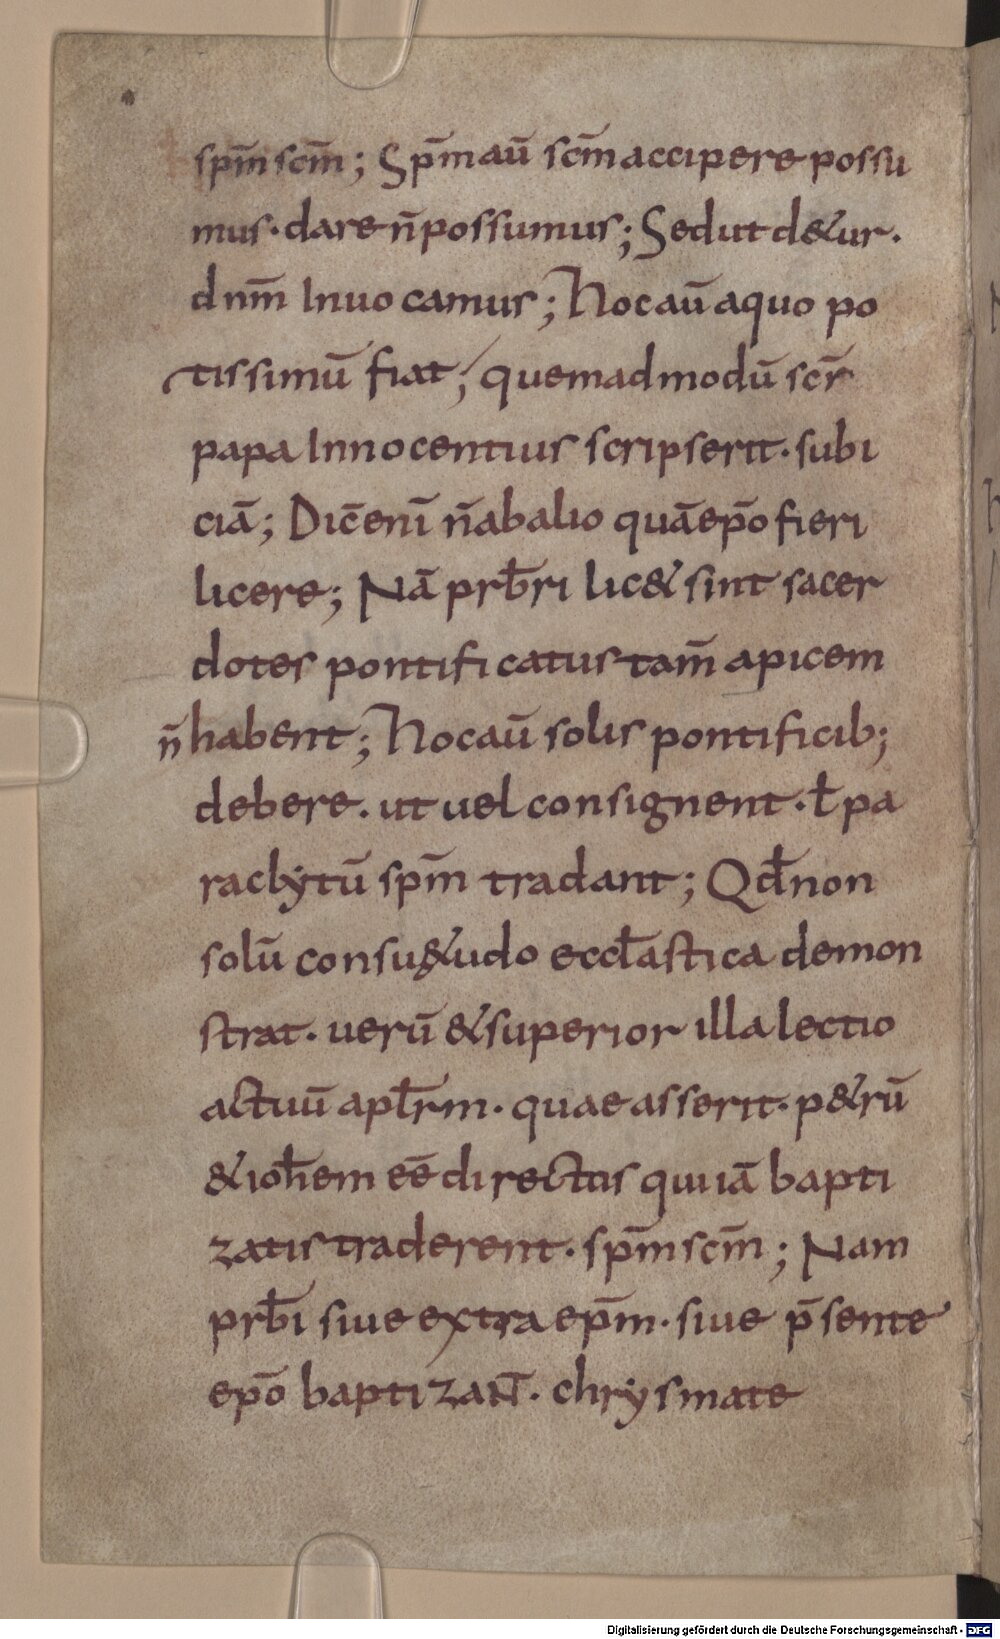 sp̄m sc̄m; Sp̄m aū sc̄m accipere possu
mus· dare n̄ possumus; Sed ut d&ur·
dnm̄ Inuocamus; Hoc aū a quo po
tissimū fiat; quemadmodū scr̄
papa Innocentius scripserit· subi
ciā; Dic̄ enī n̄ ab alio quā ep̄o fieri
licere; Nā prb̄ri lic& sint sacer
dotes pontificatus tam̄ apicem
n̄ habent; Hoc aū solis pontificib;
debere· ut uel consignent· ł pa
raclẏtū sp̄m tradant; Qd̄ non
solū consu&udo eccl̄astica demon
strat· uerū & superior illa lectio
actuū apl̄rm· quae asserit· p&rū
& ioh̄em eē directus qui iā bapti
zatis traderent· sp̄m sc̄m; Nam
prb̄i siue extra ep̄m· siue p̄sente
ep̄o baptizaN̄T· chrẏsmate
Digitalisierung gefördert durch die Deutsche Forschungsgemeinschaft - DFG